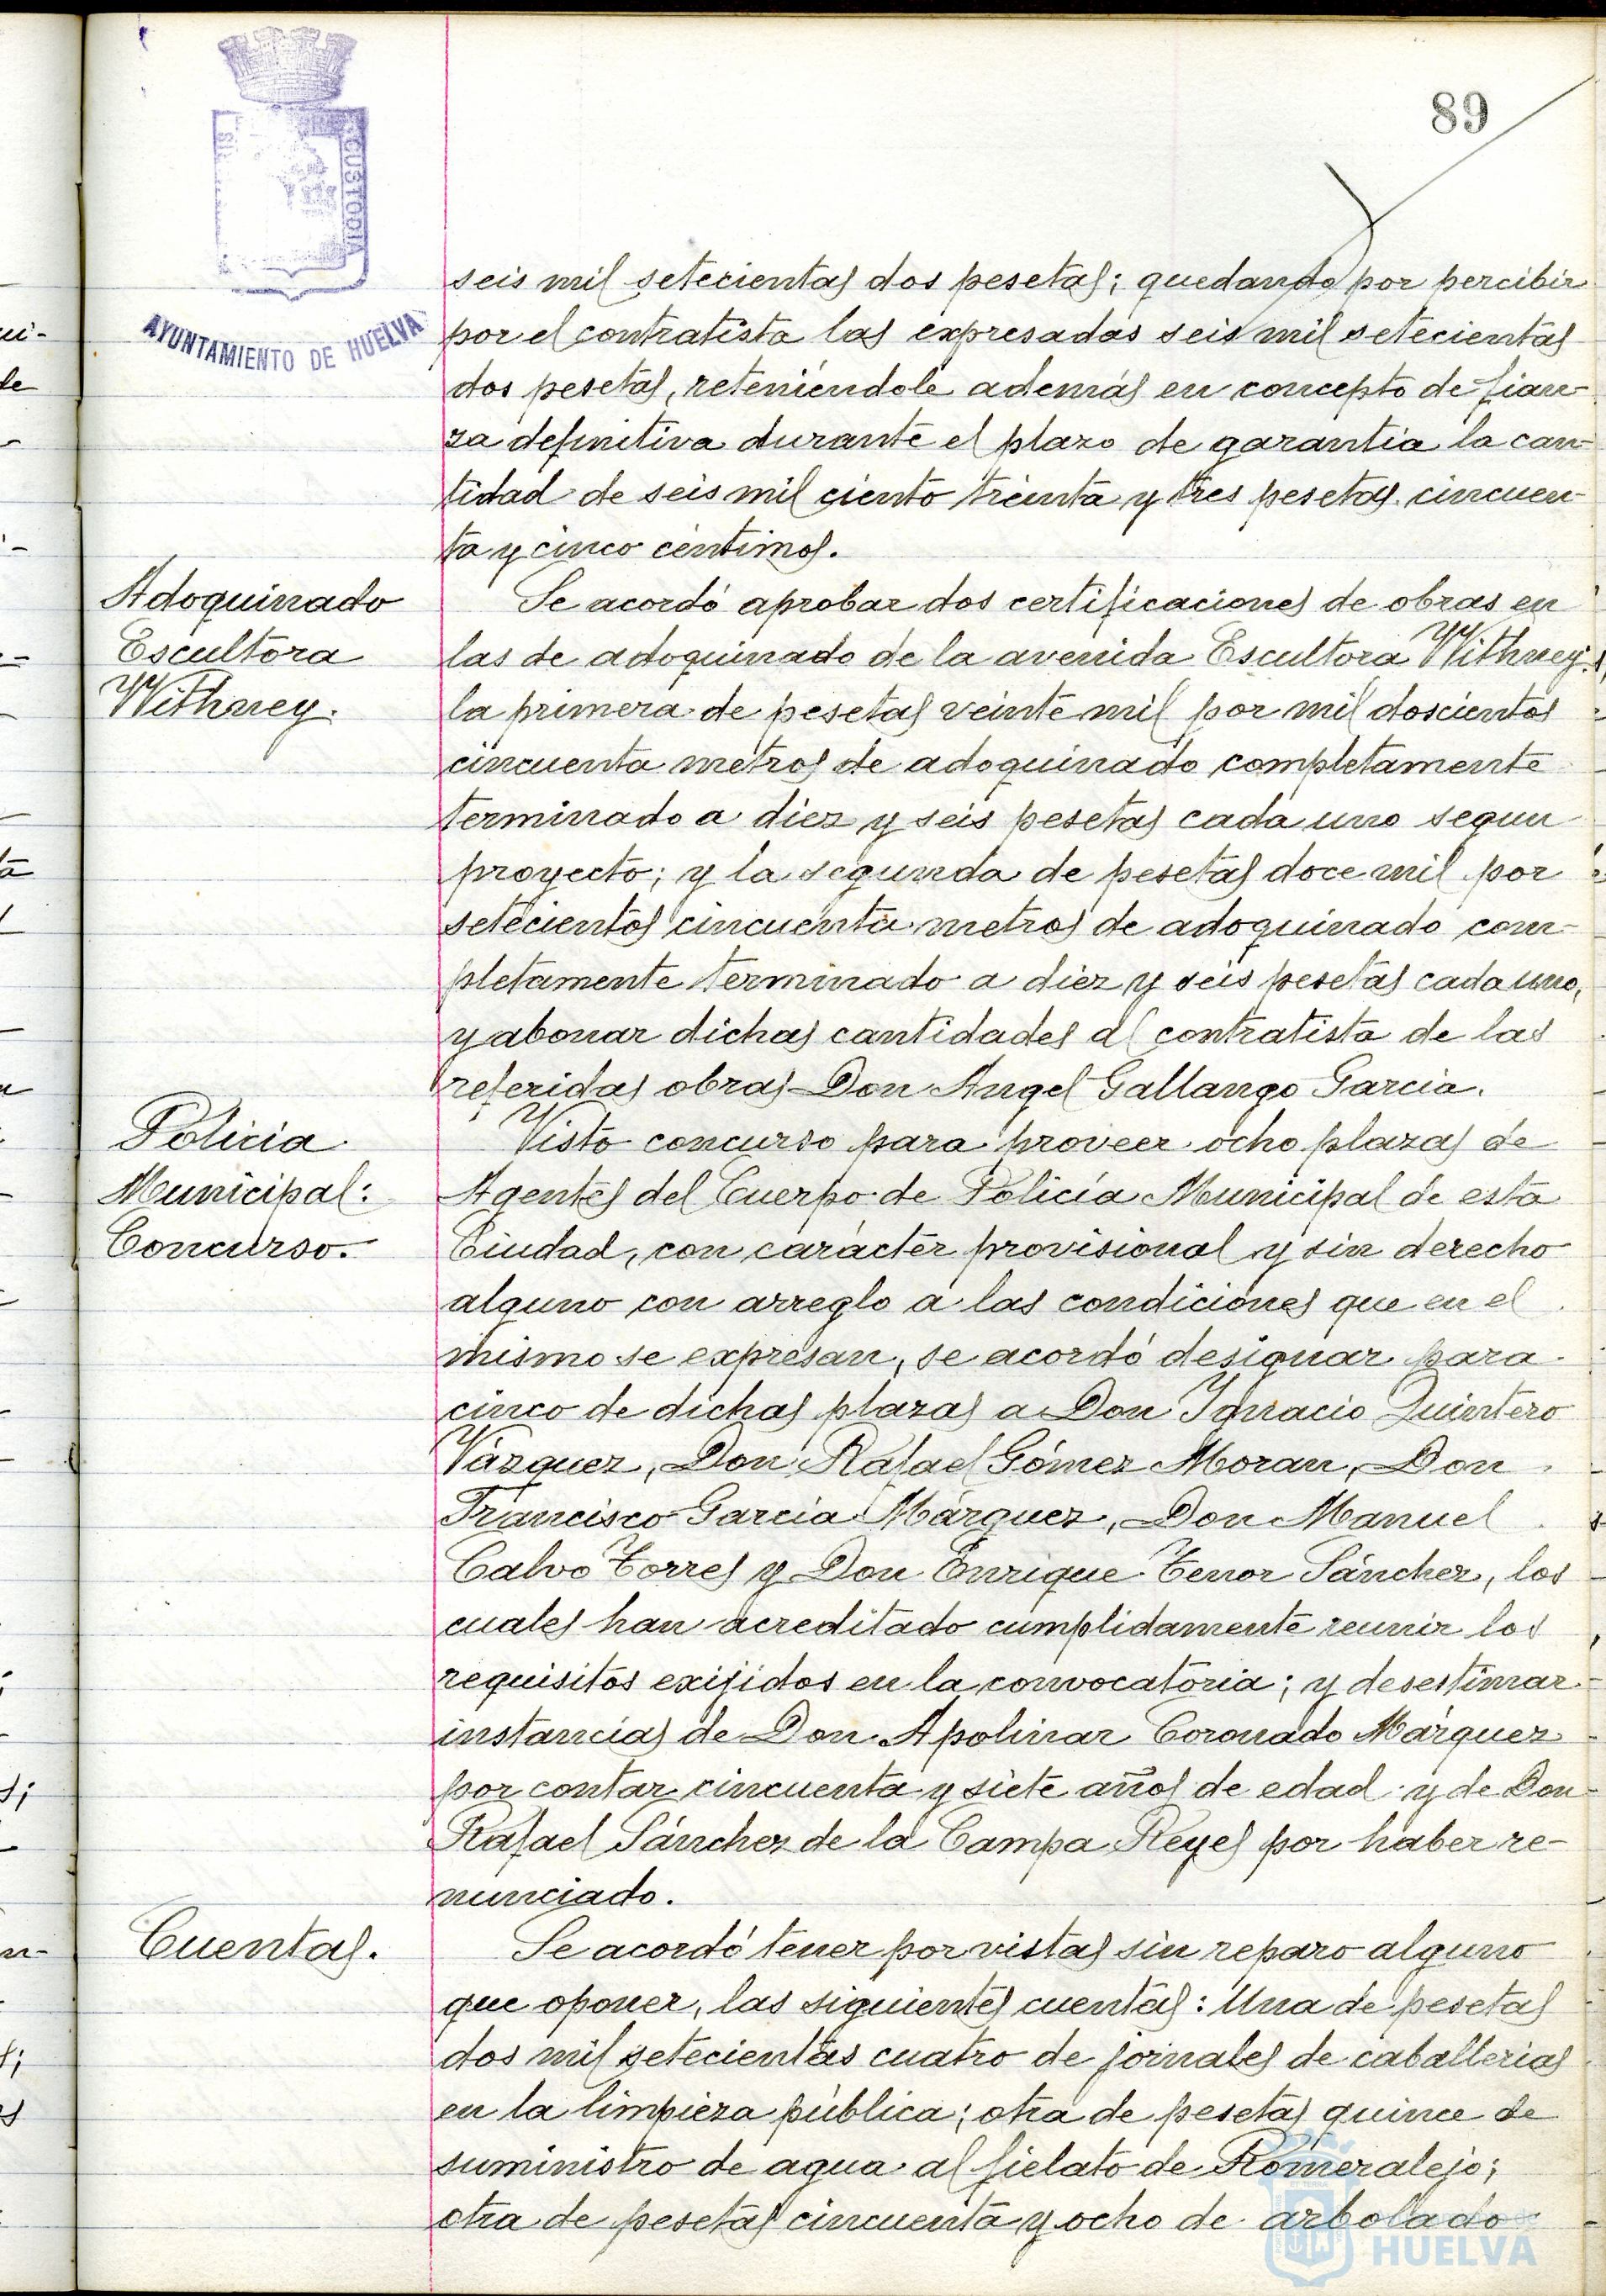 89
CUSTODIA
AYUNTAMIENTO DE HUELVA
seis mil setecientas dos pesetas; quedando por percibir
por el contratista las expresadas seis mil setecientas
dos pesetas, reteniéndole además en concepto de fian-
za definitiva durante el plazo de garantía la can-
tidad de seis mil ciento treinta y tres pesetas cincuen-
ta y cinco céntimos.
Adoquinado
Escultora
Withney.
Se acordó aprobar dos certificaciones de obras en
las de adoquinado de la avenida Escultora Withney,
la primera de pesetas veinte mil por mil doscientos
cincuenta metros de adoquinado completamente
terminado a diez y seis pesetas cada uno segun
proyecto; y la segunda de pesetas doce mil por
setecientos cincuenta metros de adoquinado com-
pletamente terminado a diez y seis pesetas cada uno,
y abonar dichas cantidades al contratista de las
referidas obras Don Angel Gallango Garcia.
Policia
Municipal:
Concurso.
Visto concurso para proveer ocho plazas de
Agentes del Cuerpo de Policía Municipal de esta
Ciudad, con carácter provisional y sin derecho
alguno con arreglo a las condiciones que en el
mismo se expresan, se acordó designar para
cinco de dichas plazas a Don Ignacio Quintero
Vázquez, Don Rafael Gómez Moran, Don
Francisco Garcia Márquez, Don Manuel
Calvo Torres y Don Enrique Tenor Sánchez, los
cuales han acreditado cumplidamente reunir los
requisitos exijidos en la convocatoria; y desestimar
instancias de Don Apolinar Coronado Márquez
por contar cincuenta y siete años de edad y de Don
Rafael Sánchez de la Campa Reyes por haber re-
nunciado.
Cuentas.
Se acordó tener por vistas sin reparo alguno
que oponer, las siguientes cuentas: Una de pesetas
dos mil setecientas cuatro de jornales de caballerias
en la limpieza pública; otra de pesetas quince de
suministro de agua al fielato de Romeralejo;
otra de pesetas cincuenta y ocho de arbolado
HUELVA